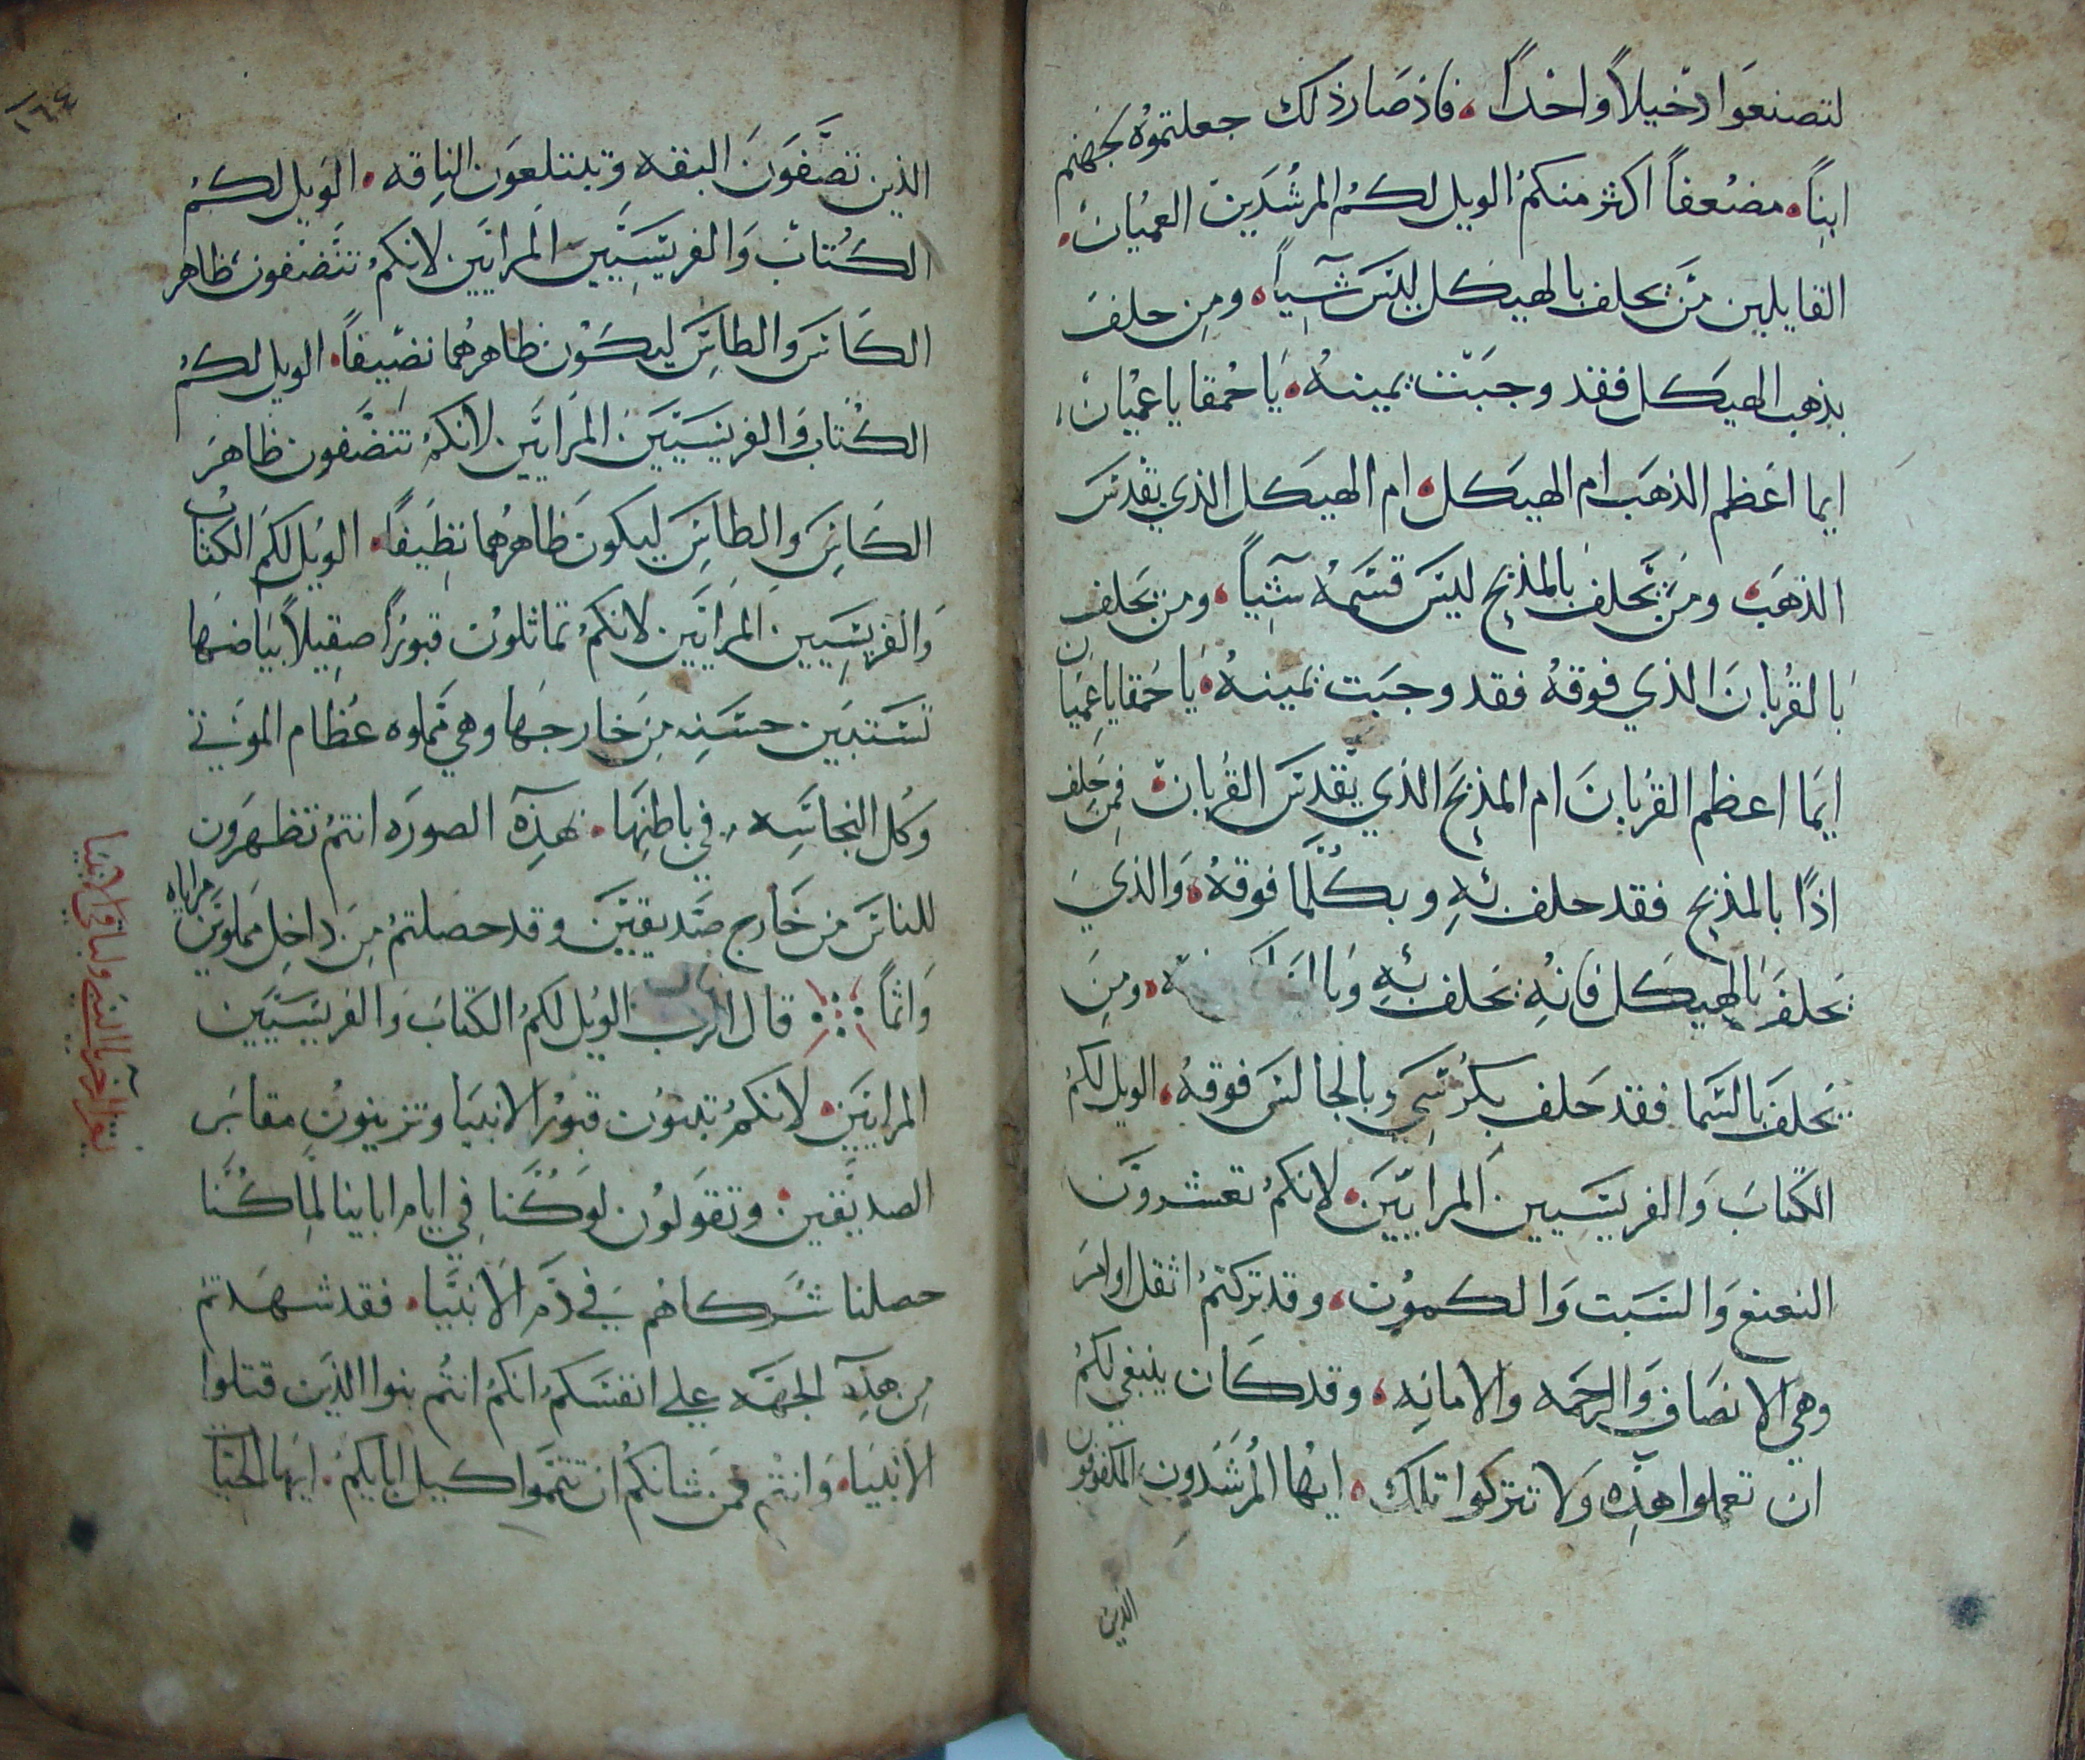 لتصنعوا دخيلاً واحداً، فاذ صار ذلك جعلتموه لجهنم
ابناً، مضعفاً اكثر منكم الويل لكم المرشدين العميان،
القايلين من يحلف بالهيكل ليس شياً، ومن حلف
بذهب الهيكل فقد وجبت يمينه، يا حمقا يا عميان،
ايما اعظم الذهب ام الهيكل، ام الهيكل الذي يقدس
الذهب، ومن يحلف بالمذبح ليس قسمه شياً، ومن يحلف
بالقربان الذي فوقه فقد وجبت يمينه، يا حمقا يا عميان
ايما اعظم القربان ام المذبح الذي يقدس القربان، فمن حلف
اذًا بالمذبح فقد حلف به وبكلما فوقه، والذي
يحلف بالهيكل فانه يحلف به ومن
يحلف بالسما فقد حلف بكرسي وبالجالس فوقه، الويل لكم
الكتاب والفريسيين المرايين، لانكم تعشرون
النعنع والشبت والكمون، وقد تركتم اثقل اوامر
وهي الانصاف والرحمه والامانه، وقد كان ينبغي لكم
ان تعملوا هذه ولا تتركوا تلك، ايها المرشدون المكفوفون
الذين
١٦٤
الذين تصفون البقه وتبتلعون الناقه، الويل لكم
الكتاب والفريسيين المرايين لانكم تنضفون ظاهر
الكاس والطاس ليكون ظاهرهما نضيفاً، الويل لكم
الكتاب والفريسيين المرايين لانكم تنضفون ظاهر
الكاس والطاس ليكون ظاهرهما نظيفاً، الويل لكم الكتاب
والفريسيين المرايين لانكم تماثلون قبوراً صقيلاً بياضها
تستبين حسنه من خارجها وهي مملوه عظام الموتي
وكل النجاسه في باطنها، بهذه الصوره انتم تظهرون
للناس من خارج صديقين وقد حصلتم من داخل مملوين مراياه
واثماً قال الرب الويل لكم الكتاب والفريسيين
المرايين، لانكم تبنون قبور الانبيا وتزينون مقابر
الصديقين، وتقولون لو كنا في ايام ابابنا لما كنا
حصلنا شركاهم في دم الانبيا، فقد شهدتم
من هذه الجهه علي انفسكم انكم انتم بنوا الذين قتلوا
الانبيا، وانتم فمن شانكم ان تتموا كيل ابايكم، ايها الحيا